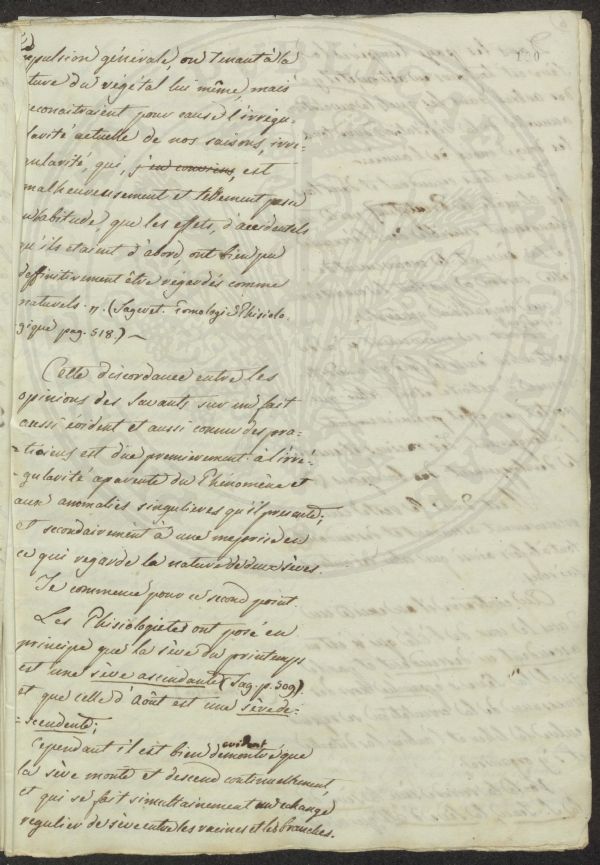 100
mpulsion générale, ou tenant à la
ture du végétal lui même, mais
econaitraient pour cause l'irrégu-
larité actuelle de nos saisons, irré-
gularité, qui, j'en conviens, est
malheureusement et tellement passé
habitude que les effets, d'accidentels
qu'ils etaient d'abord, ont bien pu
deffinitivement être régardés comme
naturels. " (Sageret. Pomologie Phisiolo-
gique pag. 518.) —
Cette discordance entre les
opinions des Savants, sur un fait
aussi évident et aussi connu des pra-
ticiens est due premierement à l'irré-
gularité aparente du Phenomène et
aux anomalies singulieres qu'il presente;
et secondairement à une meprise en
ce qui regarde la nature de deux sèves.
Je commence pour ce second point.
Les Phisiologistes ont posé en
principe que la sève du printemps
est une sève ascendante (Sag. p. 509)
et que celle d'Août est une sève de-
scendente;
evident
Cependant il est bien demontré que
la sève monte et descend continuellement,
et qui se fait simultainement un echange
regulier de sève entre les racines et les branches.